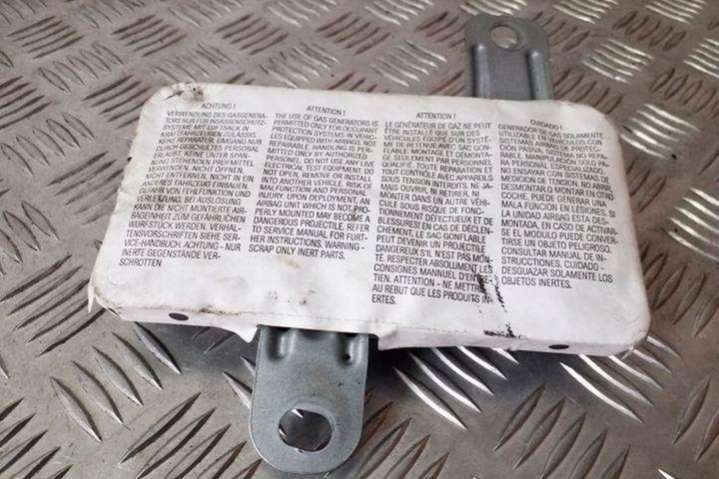 ACHTUNG !
VERWENDUNG DES GASGENERA-
TORS NUR FÜR INSASSENSCHUTZ-
SYSTEME MIT LUFTSACK IN
KRAFTFAHRZEUGEN ZULÄSSIG.
KEINE REPARATUR, UMGANG NUR
DURCH GESCHULTES PERSONAL
ERLAUBT. KEINE UNTER SPAN-
NUNG STEHENDEN PRÜFMITTEL
VERWENDEN. NICHT ÖFFNEN,
NICHT ENTFERNEN, NICHT IN EIN
ANDERES FAHRZEUG EINBAUEN.
GEFAHR VON FEHLFUNKTION UND
VERLETZUNG. BEI AUSLÖSUNG
KANN DIE NICHT MONTIERTE AIR-
BAGEINHEIT ZUM GEFÄHRLICHEN
WURFSTÜCK WERDEN. VERHAL-
TENSVORSCHRIFTEN SIEHE SER-
VICE-HANDBUCH. ACHTUNG - NUR
INERTE GEGENSTÄNDE VER-
SCHROTTEN
ATTENTION !
THE USE OF GAS GENERATORS IS
PERMITTED ONLY FOR OCCUPANT
PROTECTION SYSTEMS IN VEHIC-
LES EQUIPPED WITH AIRBAG. NOT
REPAIRABLE. HANDLING IS PER-
MITTED ONLY BY AUTHORIZED
PERSONAL. DO NOT USE ANY LIVE
ELECTRICAL TEST EQUIPMENT. DO
NOT OPEN, REMOVE OR INSTALL
INTO ANOTHER VEHICLE. RISK OF
MALFUNCTION AND PERSONAL
INJURY. UPON DEPLOYMENT, AN
AIRBAG UNIT WHICH IS NOT PRO-
PERLY MOUNTED MAY BECOME A
DANGEROUS PROJECTILE. REFER
TO SERVICE MANUAL FOR FURT-
HER INSTRUCTIONS, WARNING -
SCRAP ONLY INERT PARTS.
ATTENTION !
LE GÉNÉRATEUR DE GAZ NE PEUT
ÊTRE INSTALLÉ QUE SUR DES
VÉHICULES ÉQUIPÉS D'UN SYSTÈ-
ME DE RETENUE AVEC SAC GON-
FLABLE. MONTAGE ET DÉMONTA-
GE SEULEMENT PAR PERSONNEL
QUALIFIÉ. TOUTE RÉPARATION ET
TOUT CONTRÔLE AVEC APPAREILS
SOUS TENSION INTERDITS. NE JA-
MAIS OUVRIR, RETIRER, NI
MONTER DANS UN AUTRE VÉHI-
CULE SOUS RISQUE DE FONC-
TIONNEMENT DÉFECTUEUX ET DE
BLESSURES! EN CAS DE DÉCLEN-
CHEMENT, LE SAC GONFLABLE
PEUT DEVENIR UN PROJECTILE
DANGEREUX S'IL N'EST PAS MON-
TÉ. RESPECTER ABSOLUMENT LES
CONSIGNES MANNUEL D'ENTRE-
TIEN. ATTENTION - NE METTRE
AU REBUT QUE LES PRODUITS IN-
ERTES.
CUIDADO !
GENERADOR DE GAS SOLAMENTE
UTILIZABLE EN VEHÍCULOS, CON
SISTEMAS AIRBAG DE PROTEC-
CIÓN PERSONAL. NO REPA-
RABLE. MANIPULACIÓN SÓLO PA-
RA PERSONAL ESPECIALIZADO.
NO ENSAYAR CON SISTEMAS DE
MEDICIÓN DE TENSIÓN. NO ABRIR,
DESMONTAR O MONTAR EN OTRO
COCHE. PUEDE GENERAR UNA
MALA FUNCIÓN DE LESIONES. SI
LA UNIDAD AIRBAG ESTÁ DES-
MONTADA, EN CASO DE ACTIVAR-
SE, EL MODULO PUEDE CONVER-
TIRSE UN OBJETO PELIGROSO.
CONSULTAR MANUAL DE IN-
STRUCCIONES, CUIDADO -
DESGUAZAR SOLAMENTE LOS
OBJETOS INERTES.